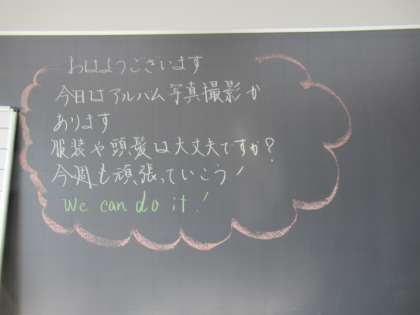 おはようございます
今日はアルバム写真撮影が
あります
服装や頭髪は大丈夫ですか?
今週も頑張っていこう!
We can do it!